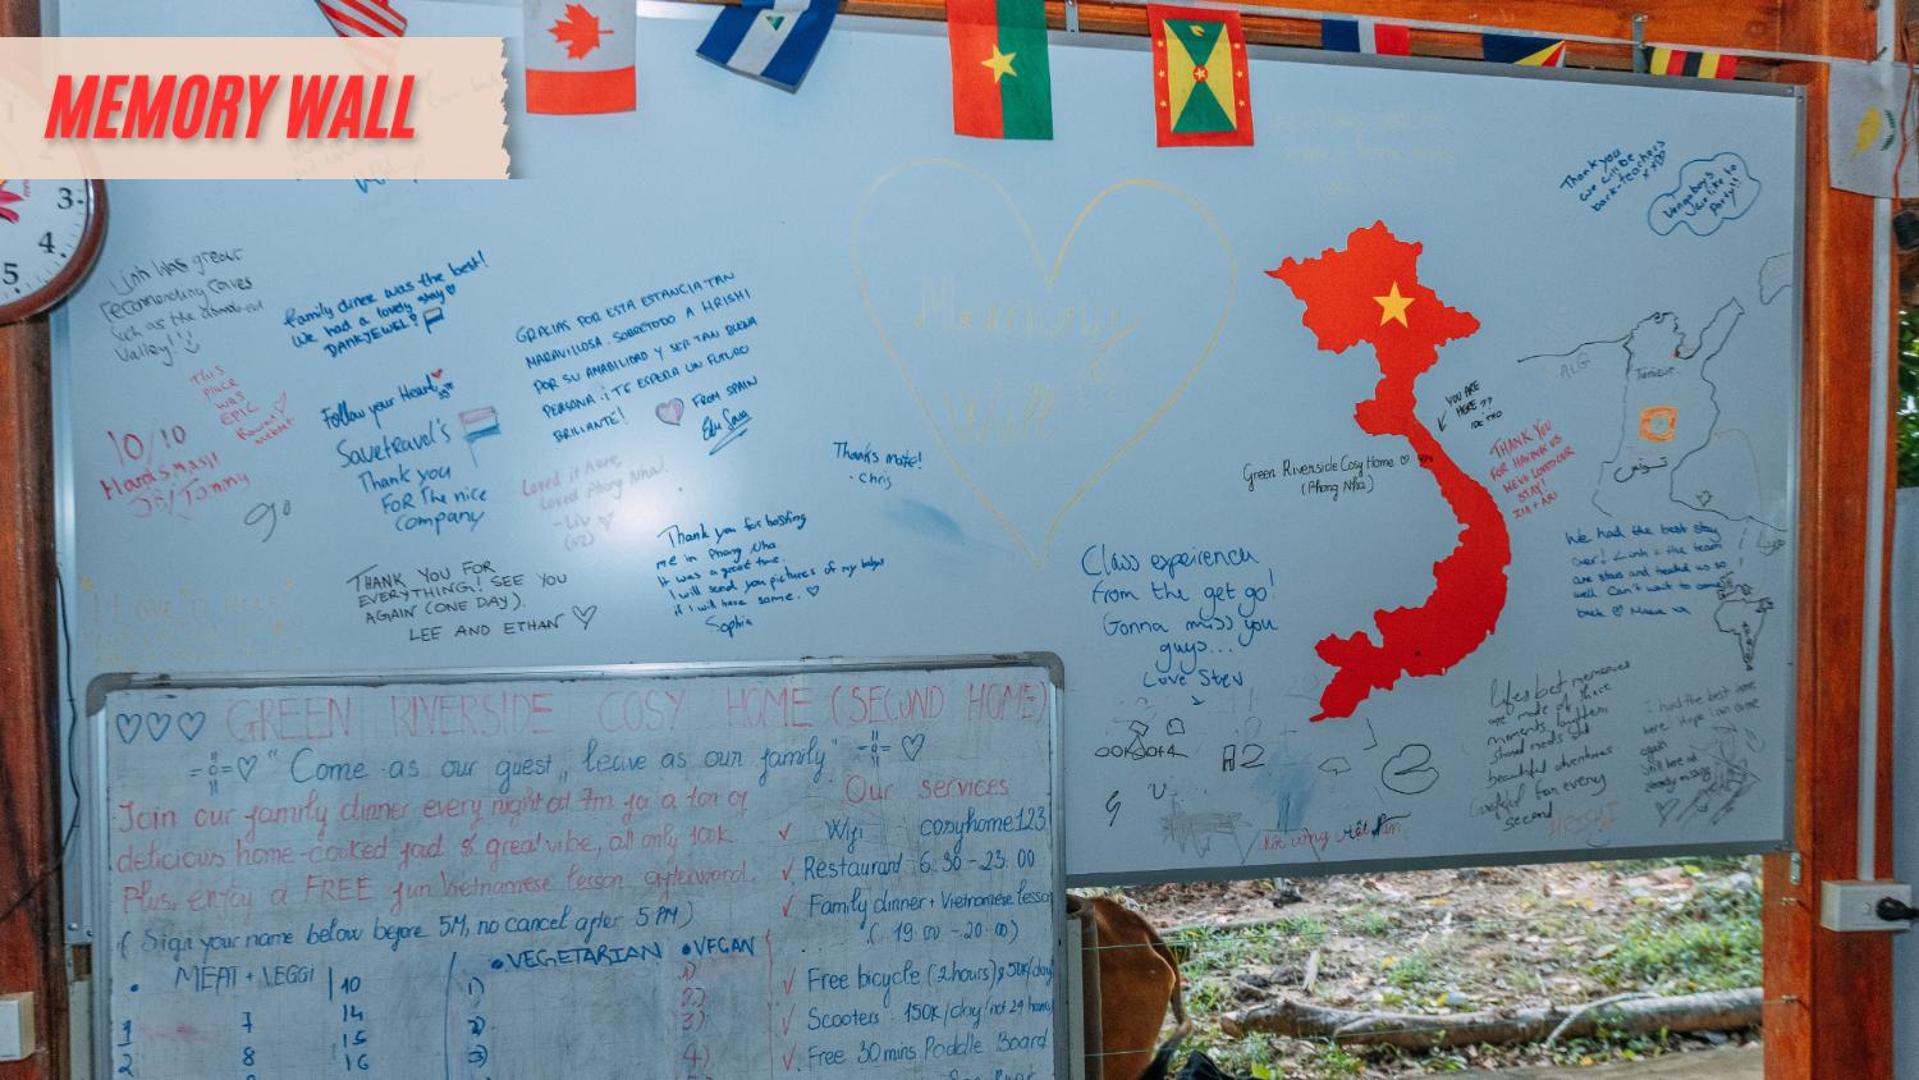 MEMORY WALL
3
4
5
Thank you
we will be
back-teachers
xxDD
Vengaboys
like to
party!!
Linh was great
recommending caves
such as the
Valley!!
family dinner was the best!
We had a lovely stay
DANKJEWEL!
GRACIAS POR ESTA ESTANCIA TAN
MARAVILLOSA. SOBRETODO A HRISHI
POR SU AMABILIDAD Y SER TAN BUENA
PERSONA. ¡TE ESPERA UN FUTURO
BRILLANTE!
FROM SPAIN
Edu Sara
Memory
Wall
THIS
PLACE
WAS
EPIC
10/10
Follow your Heart
Savetravel's
Thank you
FOR The nice
company
go
Loved it here,
loved Phong Nha!
-Liv
Thanks mate!
- Chris
Thank you for hosting
me in Phong Nha
It was a great time.
I will send you pictures of my babys
if I will have some. ♡
Sophia
THANK YOU FOR
EVERYTHING! SEE YOU
AGAIN (ONE DAY).
LEE AND ETHAN ♡
I LOVE IT HERE
YOU ARE
HERE ??
Green Riverside Cosy Home ♡
(Phong Nha)
THANK YOU
FOR HAVING US
WE'VE LOVED OUR
STAY!
ALG
Tunisie
تونس
Class expeirench
from the get go!
Gonna miss you
guys...
Love Stev
We had the best stay
ever! Linh & the team
are stars and treated us so
well. Can't want to come
back
A2
2
Life's best memories
are made of
moments, laughter
shared meals and
beautiful adventures
for every
second
I had the best time
here. Hope I can come
again
♡♡♡ GREEN RIVERSIDE COSY HOME (SECOND HOME)
"Come as our guest, leave as our family" ♡
Join our family dinner every night at 7m for a ton of
delicious home-cooked food & great vibe, all only 100k.
Plus, enjoy a FREE fun Vietnamese lesson afterward.
( Sign your name below before 5M, no cancel after 5 PM)
• MEAT + VEGGI
10
14
15
16
1
2
7
8
• VEGETARIAN
1)
2)
3)
• VEGAN
1)
2)
3)
4)
Our services
✓ Wifi : cosyhome123
✓ Restaurant : 6.30-23.00
✓ Family dinner + Vietnamese lesson
( 19.00 - 20.00)
✓ Free bicycle (2hours) & 50k/day
✓ Scooters : 150k/day
✓ Free 30 mins Paddle Board